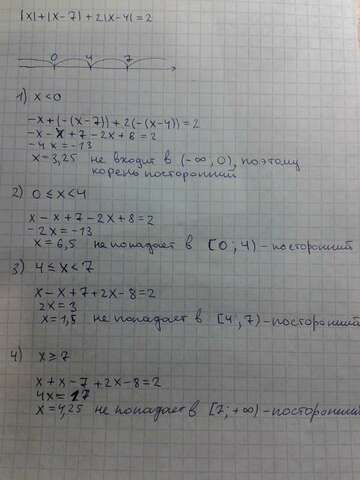 |x|+|x-7|+2|x-4|=2
0 4 7
1) x<0
-x+(-(x-7))+2(-(x-4))=2
-x-x+7-2x+8=2
-4x=-13
x=3,25 не входит в (-∞,0), поэтому
корень посторонний
2) 0≤x<4
x-x+7-2x+8=2
-2x=-13
x=6,5 не попадает в [0;4)-посторонний
3) 4≤x<7
x-x+7+2x-8=2
2x=3
x=1,5 не попадает в [4;7)-посторонний
4) x≥7
x+x-7+2x-8=2
4x=17
x=4,25 не попадает в [7;+∞)-посторонний